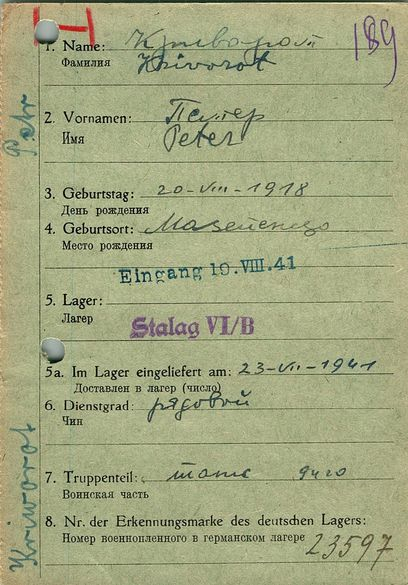 189
1. Name: Криворот
Фамилия Krivorot
Petr
2. Vornamen: Петер
Имя Peter
3. Geburtstag: 20-VIII-1918
День рождения
4. Geburtsort:
Место рождения
Eingang 19. VIII. 41
5. Lager:
Лагер
Stalag VI/B
5a. Im Lager eingeliefert am: 23-VII-1941
Доставлен в лагер (число)
6. Dienstgrad: рядовой
Чин
Kriworot
7. Truppenteil:
Воинская часть
8. Nr. der Erkennungsmarke des deutschen Lagers:
Номер военнопленного в германском лагере 23597